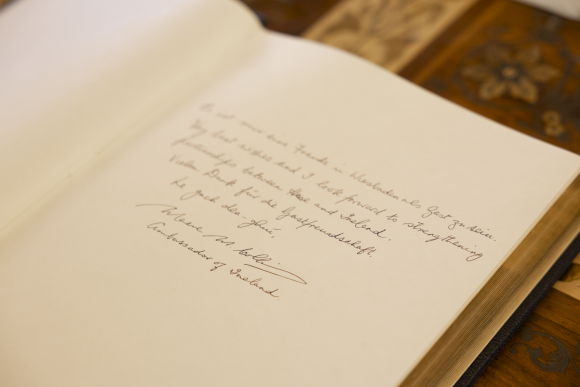 Es ist mir eine Freude in Wiesbaden als Gast zu sein.
My best wishes and I look forward to strengthening
friendships between and Ireland.
Vielen Dank für die Gastfreundschaft.
Le gach dea-ghuí,
Ambassador of Ireland